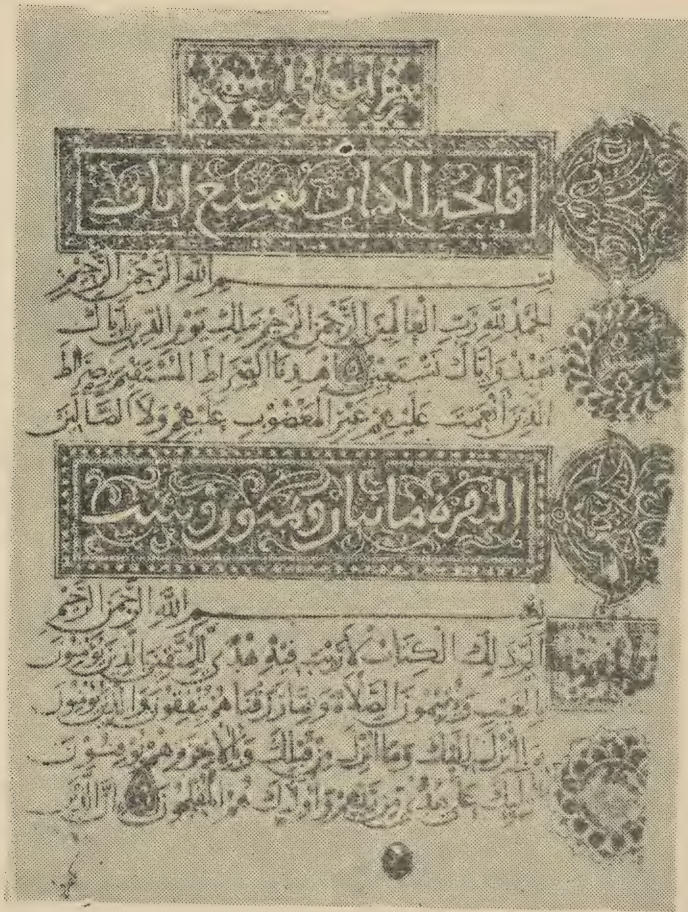 فاتحة الكتاب سبع ايات
بسم الله الرحمن الرحيم
الحمد لله رب العالمين الرحمن الرحيم ملك يوم الدين اياك
نعبد واياك نستعين اهدنا الصراط المستقيم صراط
الذين أنعمت عليهم غير المغضوب عليهم ولا الضالين
البقرة مايتان
بسم الله الرحمن الرحيم
الم ذلك الكتاب لا ريب فيه هدى للمتقين الذين يؤمنون
بالغيب ويقيمون الصلاة ومما رزقناهم ينفقون والذين يؤمنون
بما انزل اليك وما انزل من قبلك وبالاخرة هم يوقنون
اولئك على هدى من ربهم واولئك هم المفلحون ان الذين